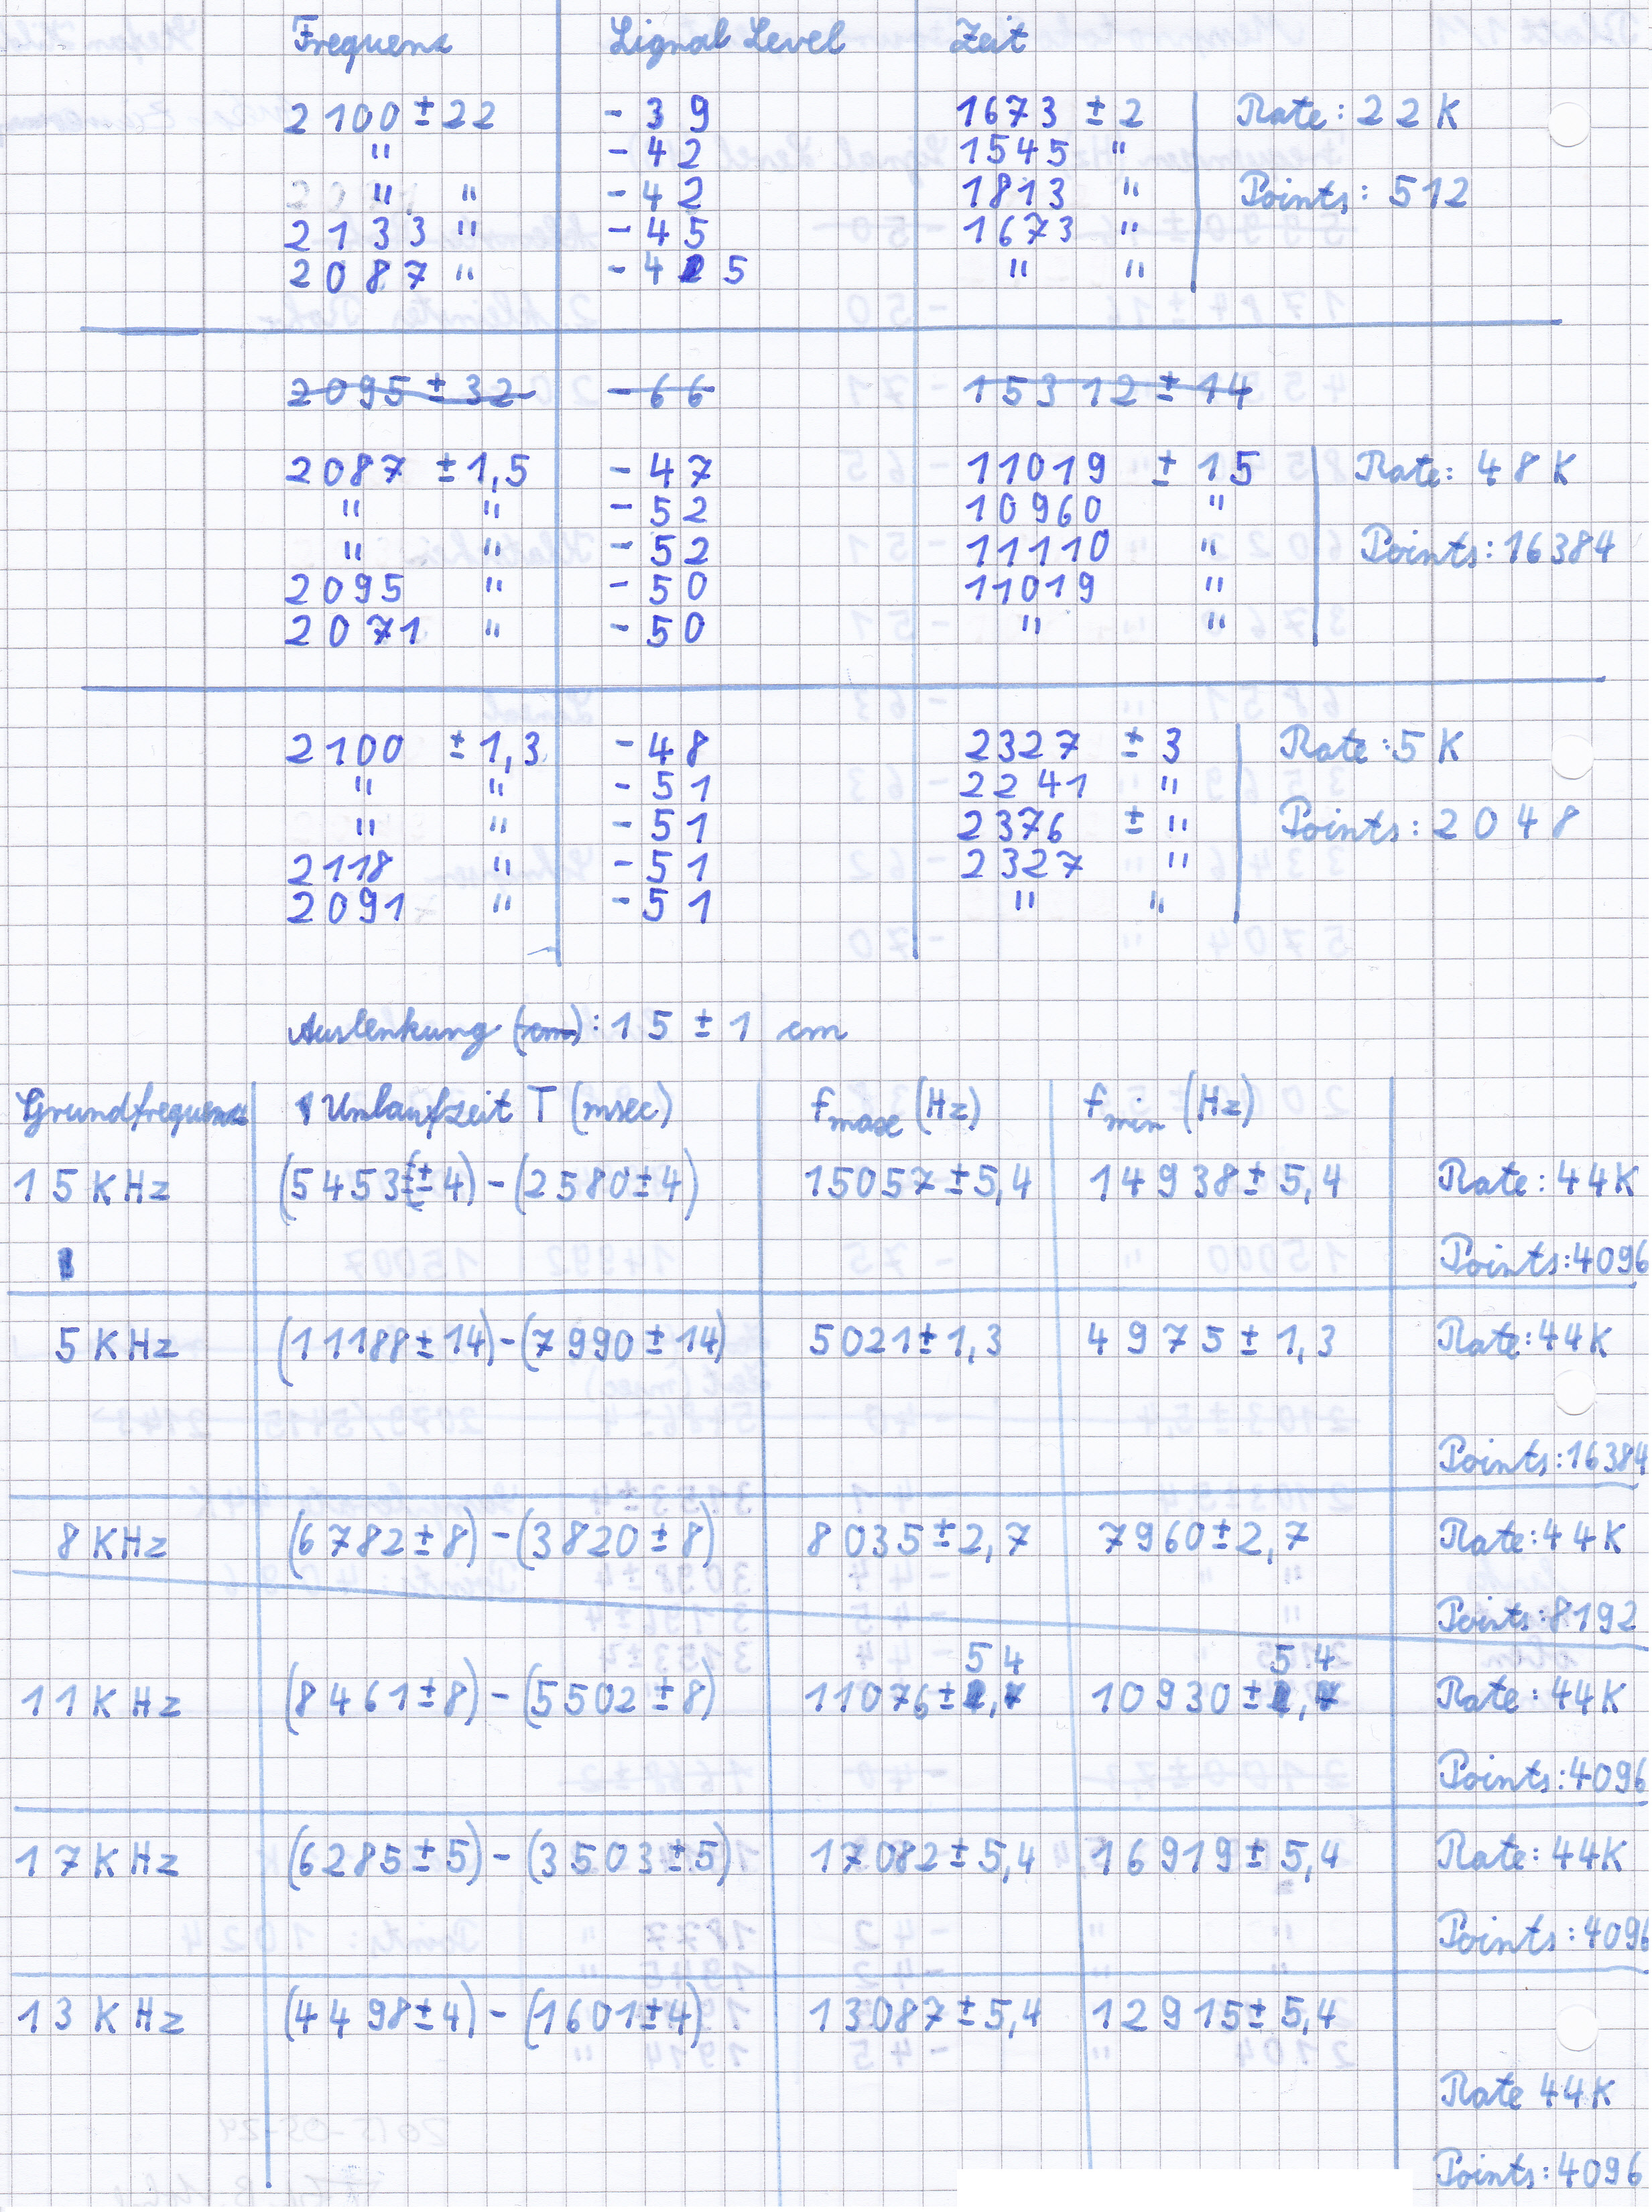 Frequenz Signal Level Zeit
2100 ± 22 - 39 1673 ± 2 Rate: 22K
" - 42 1545 "
" " - 42 1813 " Points: 512
2133 " - 45 1673 "
2087 " - 45 " "
2095 ± 32 - 66 15312 ± 14
2087 ± 1,5 - 47 11019 ± 15 Rate: 48K
" " - 52 10960 "
" " - 52 11110 " Points: 16384
2095 " - 50 11019 "
2071 " - 50 " "
2100 ± 1,3 - 48 2327 ± 3 Rate: 5K
" " - 51 2241 "
" " - 51 2376 ± " Points: 2048
2118 " - 51 2327 "
2091 " - 51 " "
Auslenkung (cm): 15 ± 1 cm
Grundfrequenz Umlaufzeit T (msec) fmax (Hz) fmin (Hz)
15 KHz (5453 ± 4) - (2580 ± 4) 15057 ± 5,4 14938 ± 5,4 Rate: 44K
Points: 4096
5 KHz (11188 ± 14) - (7990 ± 14) 5021 ± 1,3 4975 ± 1,3 Rate: 44K
Points: 16384
8 KHz (6782 ± 8) - (3820 ± 8) 8035 ± 2,7 7960 ± 2,7 Rate: 44K
Points: 8192
5 4 5.4
11 KHz (8461 ± 8) - (5502 ± 8) 11076 ± 10930 ± Rate: 44K
Points: 4096
17 KHz (6285 ± 5) - (3503 ± 5) 17082 ± 5,4 16919 ± 5,4 Rate: 44K
Points: 4096
13 KHz (4498 ± 4) - (1601 ± 4) 13087 ± 5,4 12915 ± 5,4
Rate 44K
Points: 4096